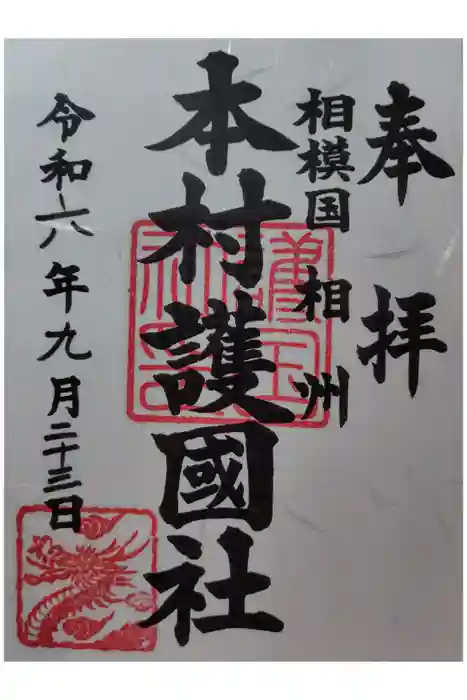 奉拝
相模国 相州
本村護國社
令和六年九月二十三日